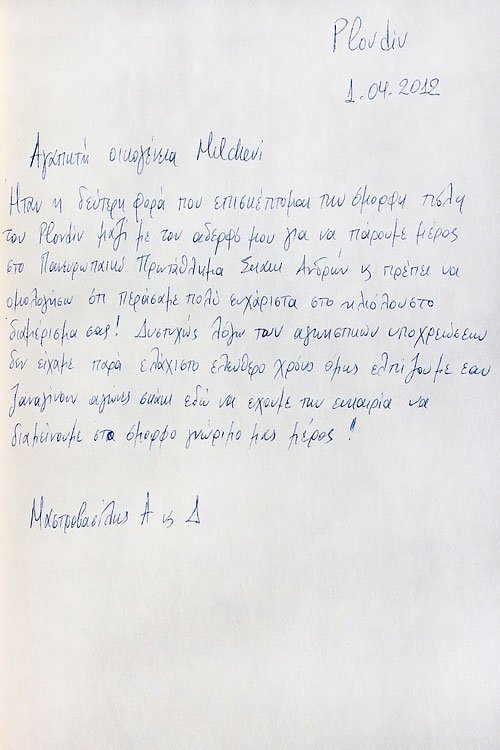 Plovdiv
1.04.2012
Αγαπητή οικογένεια Milchevi
Ήταν η δεύτερη φορά που επισκέπτομαι την όμορφη πόλη
του Plovdiv μαζί με τον αδερφό μου για να πάρουμε μέρος
στο Πανευρωπαικό Πρωτάθλημα Σκάκι Ανδρών κ πρέπει να
ομολογήσω ότι περάσαμε πολύ ευχάριστα στο ηλιόλουστο
διαμέρισμα σας! Δυστυχώς λόγω των αγωνιστικών υποχρεώσεων
δεν είχαμε παρά ελάχιστο ελεύθερο χρόνο όμως ελπίζουμε εαν
ξαναγίνουν αγώνες σκάκι εδώ να εχουμε την ευκαιρία να
διαμείνουμε στο όμορφο γνώριμο μας μέρος!
Μαστροβασίλης Α κ Δ